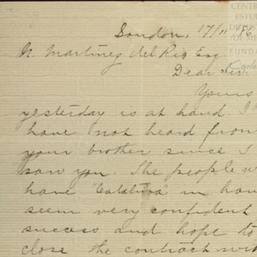 London, 17/11
N. Martinez del Rio Esq
Dear Sir.
Yours
yesterday is at hand. I
have not heard from
your brother since I
saw you. The people w
have "Catalina" in han
seem very confident
success and hope to
close the contract with